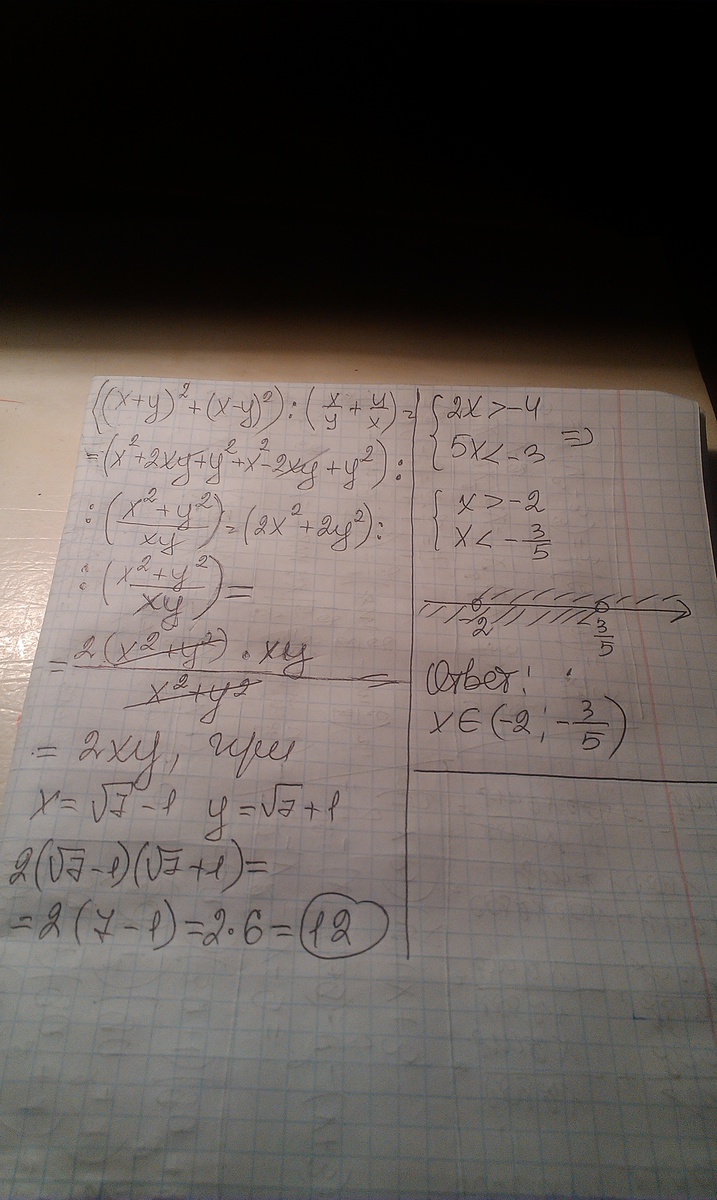 ((x+y)²+(x-y)²):(x/y+y/x)=
=(x²+2xy+y²+x²-2xy+y²):
:((x²+y²)/xy)=(2x²+2y²):
:((x²+y²)/xy)=
=(2(x²+y²)·xy)/(x²+y²)=
=2xy, при
x=√7-1 y=√7+1
2(√7-1)(√7+1)=
=2(7-1)=2·6=12
{2x>-4
{5x<-3 =>
{x>-2
{x<-3/5
-2 -3/5
Ответ:
x∈(-2;-3/5)